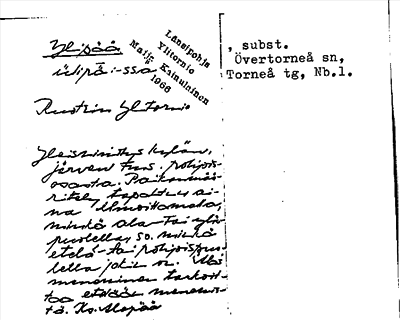 Ylipää
ülipǟ: -ssä
Länsipohja
Ylitornio
Maija Kainulainen
1966
, subst.
Övertorneå sn,
Torneå tg, Nb.l.
Ruotsin Ylitornio
Yleisnimitys kylän,
järven tms. pohjois-
osasta. Paikanmää-
rittely tapahtuu ai-
na ilmoittamalla,
minkä ala- tai ylä-
puolella, so. minkä
etelä- tai pohjoispuo-
lella jokin on.
meneminen tarkoit-
taa etelään menemis-
tä. Ks. Alapää